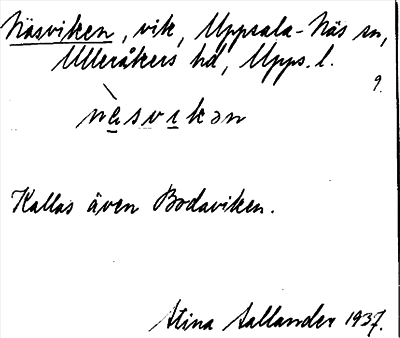 Näsviken, vik, Uppsala-Näs sn,
Ulleråkers hd, Upps. l.
9.
nè̱svi̱kən
Kallas även Bodaviken.
Stina Sallander 1937.